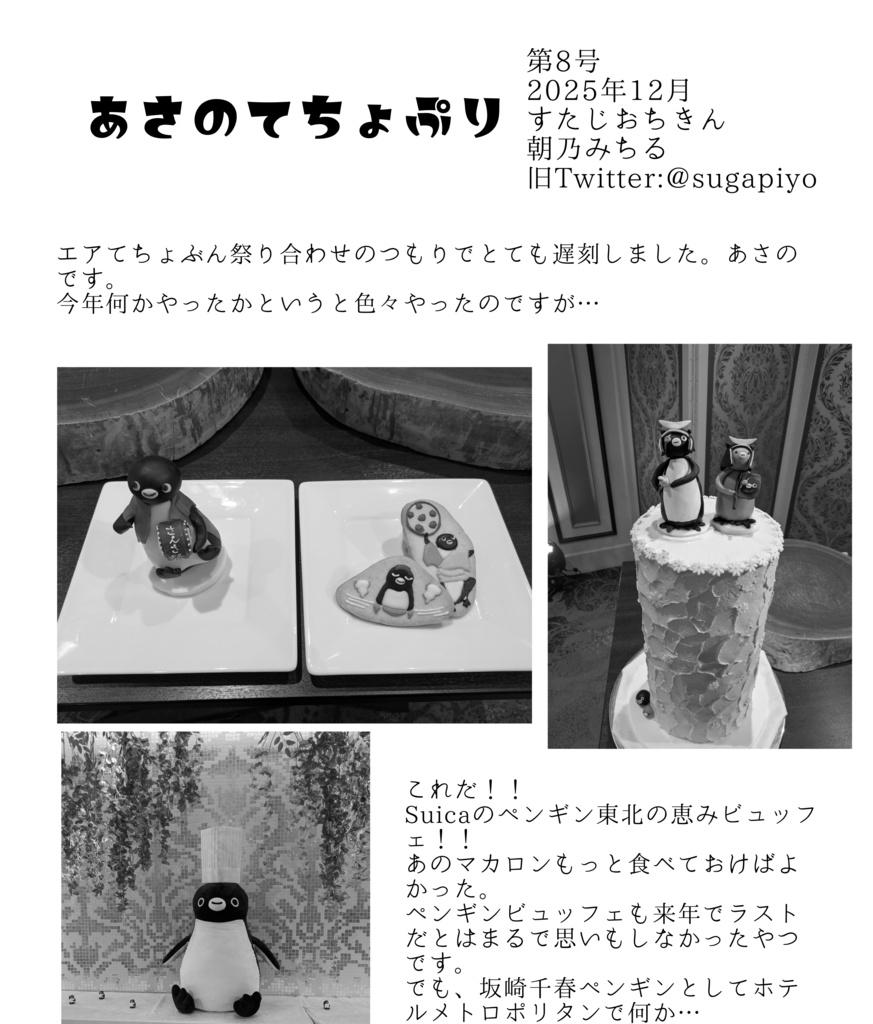 あさのてちょぷり
第8号
2025年12月
すたじおちきん
朝乃みちる
旧Twitter:@sugapiyo
エアてちょぶん祭り合わせのつもりでとても遅刻しました。あさの
です。
今年何かやったかというと色々やったのですが…
これだ！！
Suicaのペンギン東北の恵みビュッフ
ェ！！
あのマカロンもっと食べておけばよ
かった。
ペンギンビュッフェも来年でラスト
だとはまるで思いもしなかったやつ
です。
でも、坂崎千春ペンギンとしてホテ
ルメトロポリタンで何か…